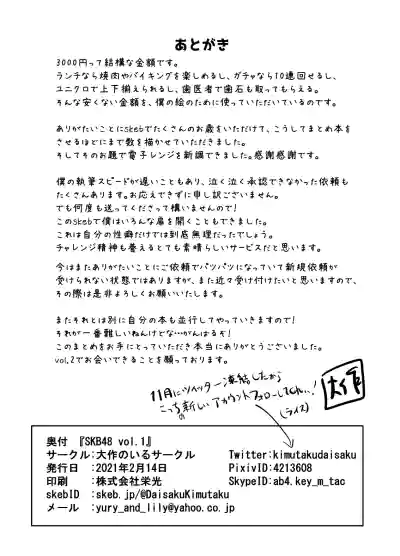 あとがき
3000円って結構な金額です。
ランチなら焼肉やバイキングを楽しめるし、ガチャなら10連回せるし、
ユニクロで上下揃えられるし、歯医者で歯石も取ってもらえる。
そんな安くない金額を、僕の絵のために使っていただいているのです。
ありがたいことにskebでたくさんのお歳をいただけて、こうしてまとめ本を
させるほどにまで数を描かせていただきました。
そしてそのお題で電子レンジを新調できました。感謝感謝です。
僕の執筆スピードが遅いこともあり、泣く泣く承認できなかった依頼も
たくさんあります。お応えできずに申し訳ございません。
でも何度も送ってくださって構いませんので!
このSkebで僕はいろんな扉を開くこともできました。
これは自分の性癖だけでは到底無理だったでしょう。
チャレンジ精神も養えるとても素晴らしいサービスだと思います。
今はまたありがたいことにご依頼でパツパツになっていて新規依頼が
受けられない状態ではありますが、また近々受け付けたいと思いますので、
その際は是非よろしくお願いいたします。
またそれとは別に自分の本も並行してやっていきますので!
それが一番難しいねんけどな…がんばるぞ!
このまとめをお手にとっていただき本当にありがとうございました。
vol.2でお会いできることを願っております。
11月にツイッター凍結したから
こっちの新しいアカウントフォローしてくれ…!
(ライス)
大作
奥付 『SKB48 vol.1』
サークル:大作のいるサークル
発行日 :2021年2月14日
印刷 :株式会社栄光
skebID :skeb.jp/@DaisakuKimutaku
メール :yury_and_lily@yahoo.co.jp
Twitter:kimutakudaisaku
PixivID:4213608
SkypeID:ab4.key_m_tac